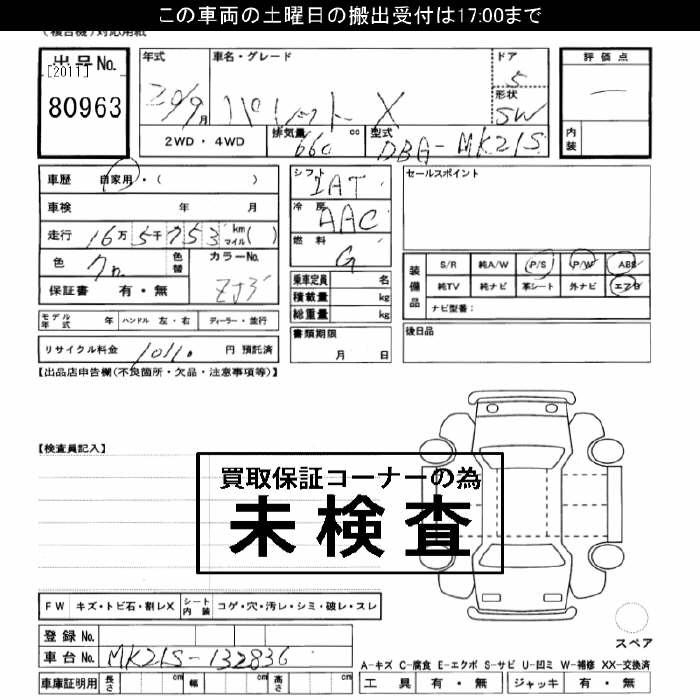 この車両の土曜日の搬出受付は17:00まで
(複合機)対応用紙
出品No.
[2011]
80963
年式
20/9月
車名・グレード
パレット X
ドア
5
形状
SW
2WD・4WD
排気量
660
cc
型式
DBA-MK21S
評価点
内装
車歴 自家用・( )
車検 年 月
走行 16万5千753 km マイル( )
色
色替
カラーNo.
ZJ3
保証書 有・無
シフト
IAT
冷房
AAC
燃料
G
乗車定員 名
積載量 kg
総重量 kg
書類期限
月 日
セールスポイント
装備品
S/R 純A/W P/S P/W ABS
純TV 純ナビ 革シート 外ナビ エアB
ナビ型番:
後日品
モデル年式 年 ハンドル 左・右 ディーラー・並行
リサイクル料金 円 預託済
【出品店申告欄(不良箇所・欠品・注意事項等)】
【検査員記入】
買取保証コーナーの為
未検査
FW キズ・トビ石・割レX シート内装 コゲ・穴・汚レ・シミ・破レ・スレ
スペア
登録No.
車台No. MK21S-132836
A-キズ C-腐食 E-エクボ S-サビ U-凹ミ W-補修 XX-交換済
車庫証明用 長さ cm 幅 cm 高さ cm
工具 有・無 ジャッキ 有・無